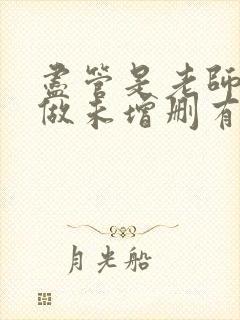 盡管是老師
做未增删有
月光船